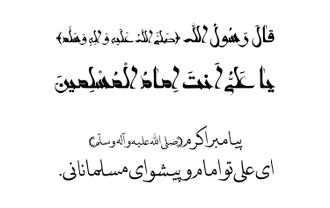 قالَ رَسُولُ اللّٰه ﴿صَلَّی اللّٰهُ عَلَیهِ وَ اٰلِهِ وَ سَلَّم﴾
یا عَلیُّ اَنتَ اِمامُ الْمُسْلِمینَ
پیامبر اکرم(صلی الله علیه و آله وسلّم)
ای علی تو امام و پیشوای مسلمانانی.